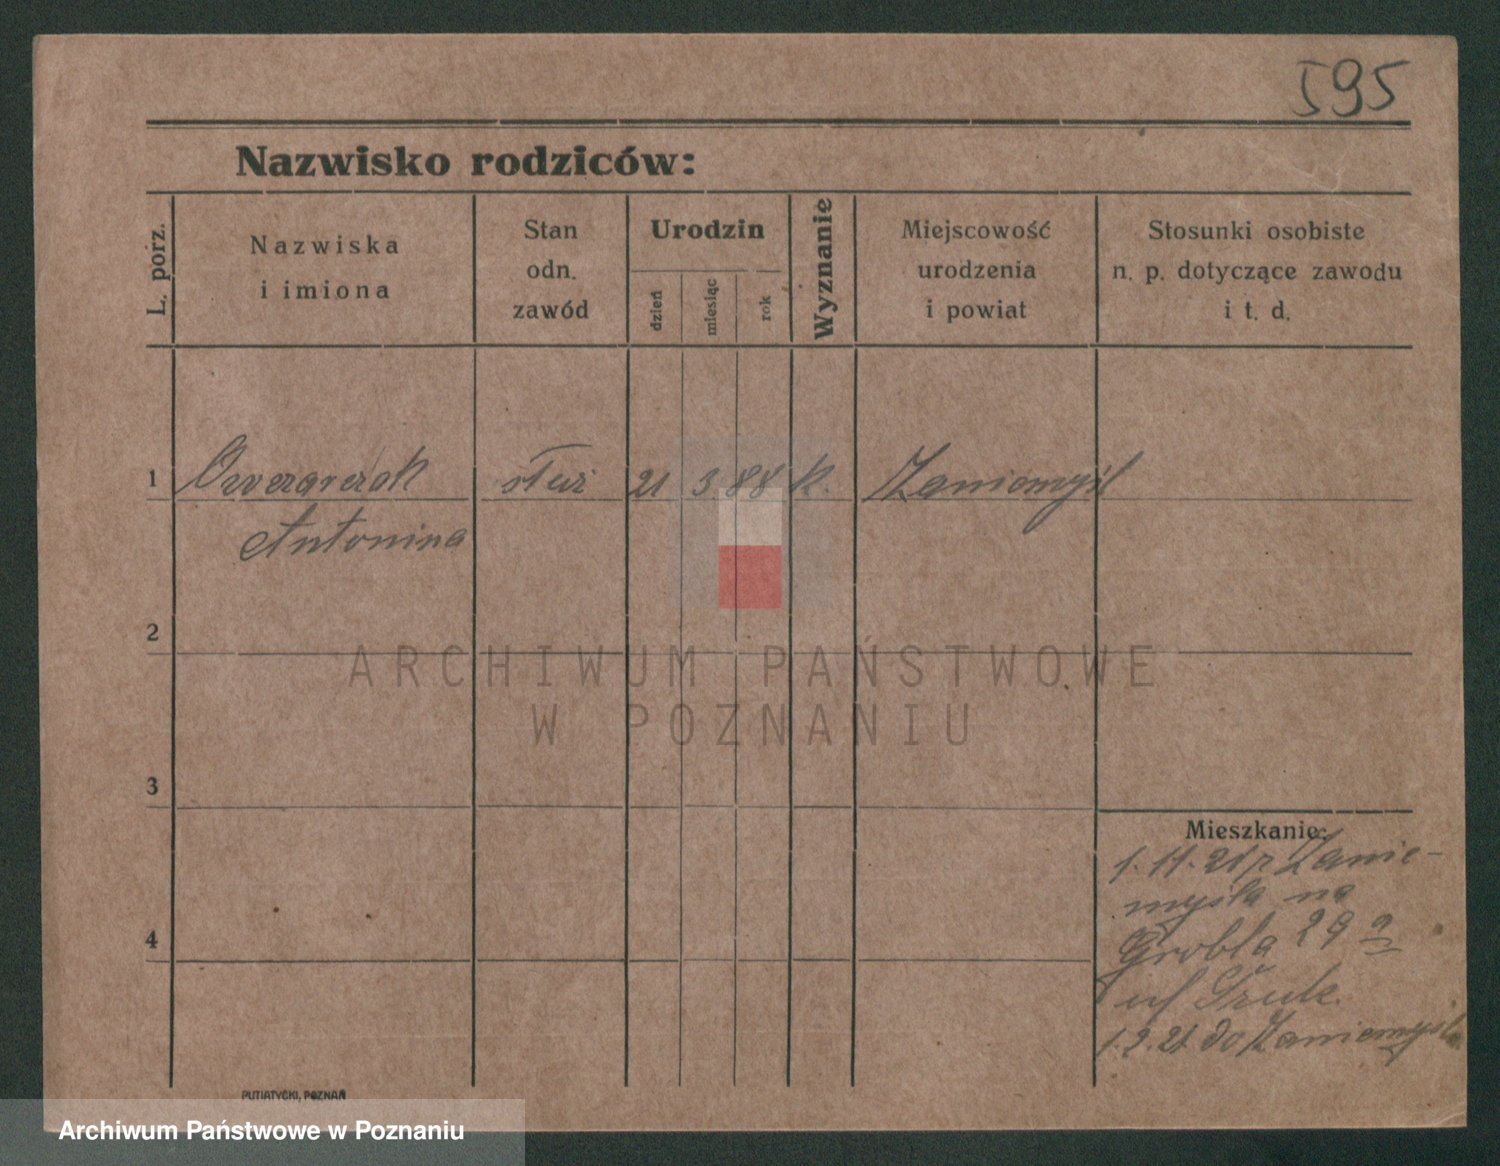 595
Nazwisko rodziców:
L. porz.
Nazwiska
i imiona
Stan
odn.
zawód
Urodzin
dzień
miesiąc
rok
Wyznanie
Miejscowość
urodzenia
i powiat
Stosunki osobiste
n. p. dotyczące zawodu
i t. d.
1
21 3 88 k. Zaniemyśl
Antonina
2
ARCHIWUM PAŃSTWOWE
W POZNANIU
3
Mieszkanie:
1. 11. 21 z Zanie-
myśla na
4
Grobla 29 a
1. 2. 21. do Zaniemyśla
PUTIATYCKI, POZNAŃ
Archiwum Państwowe w Poznaniu